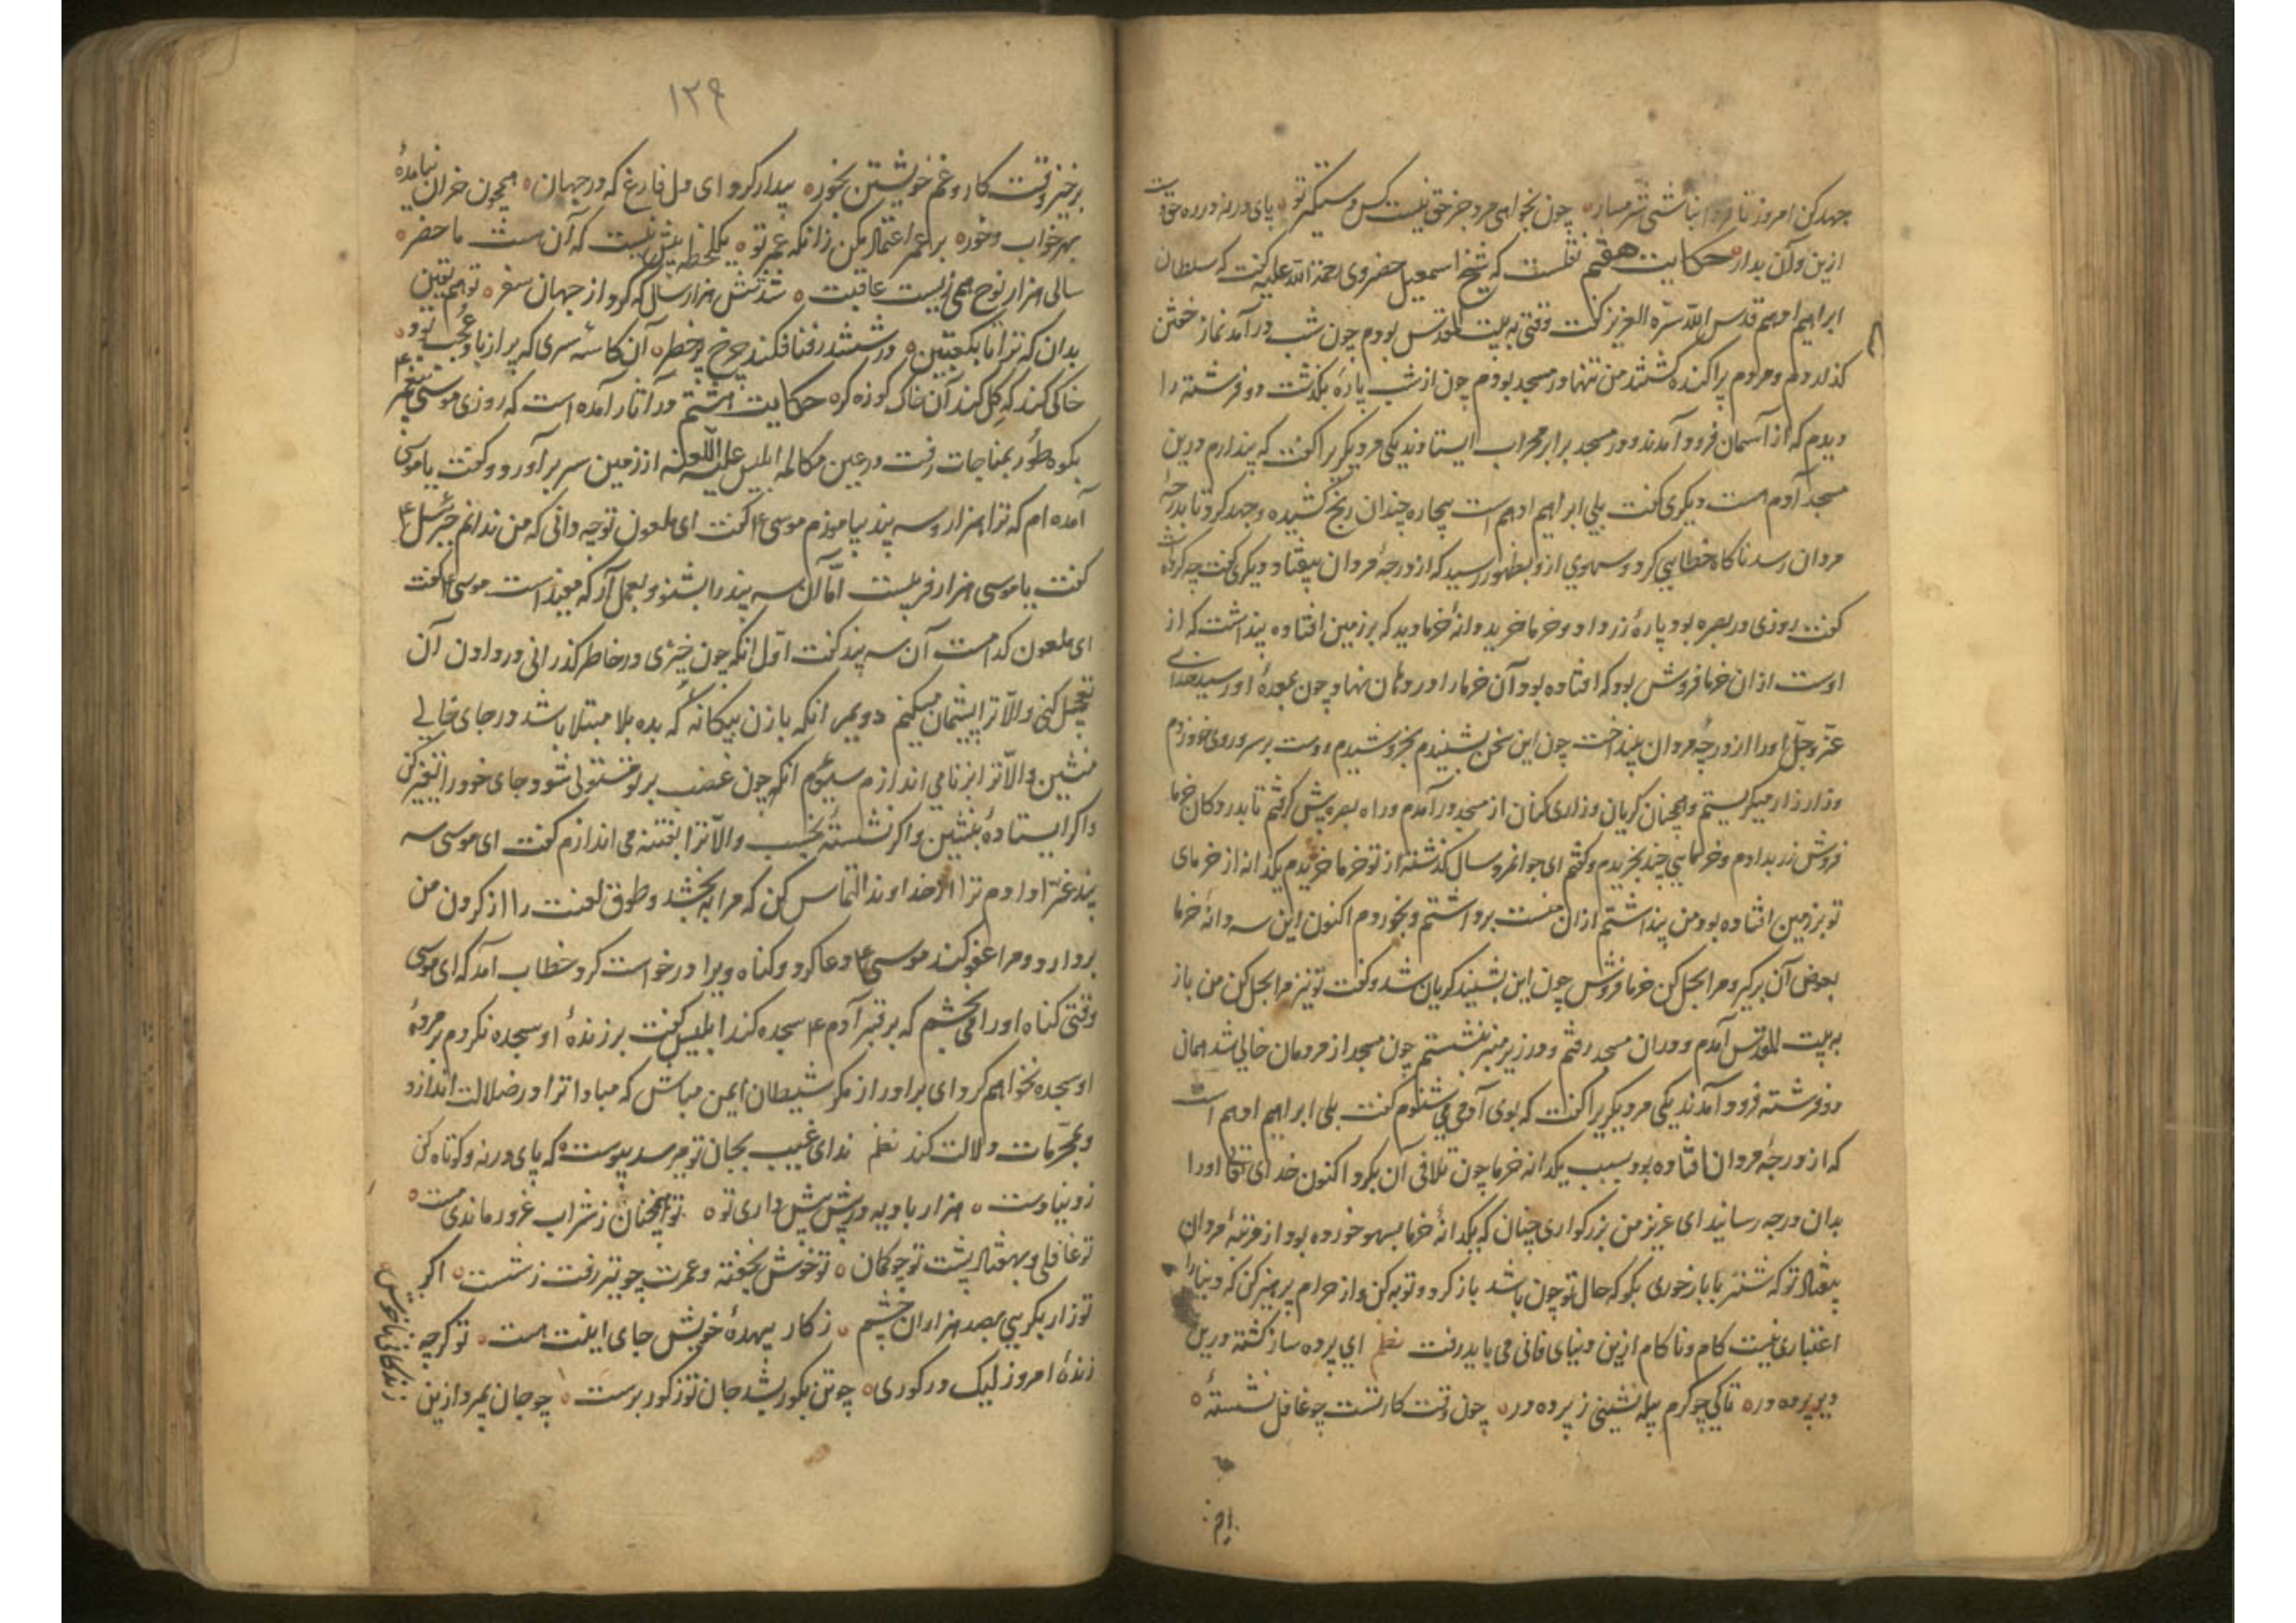 جهد کن امروز تا فردا نباشی شرمسار چون نخواهی مرد جز حق نیست کس دستگیر تو پای در نه در ره حق دست
ازین و آن بدار حکایت هفتم نقلست که شیخ اسمعیل حضروی رحمة الله علیه گفت که سلطان
ابراهیم ادهم قدس الله سره العزیز گفت وقتی به بیت المقدس بودم چون شب در آمد نماز خفتن
گذاردم و مردم پراکنده گشتند من تنها در مسجد بودم چون از شب پارهٔ بگذشت دو فرشته را
دیدم که از آسمان فرود آمدند و در مسجد برابر محراب ایستادند یکی مر دیگریرا گفت که پندارم درین
مسجد آدم هست دیگری گفت بلی ابراهیم ادهم است بیچاره چندان رنج کشیده و جهد کرد تا بدرجهٔ
مردان رسد ناگاه خطایی کرد و سهوی ازو بظهور رسید که از درجهٔ مردان بیفتاد دیگری گفت چه کرده است
گفت روزی در بصره بود پارهٔ زر داد و خرما خرید دانهٔ خرما دید که بر زمین افتاده پنداشت که از
اوست از ان خرما فروش بود که افتاده بود آن خرما را در دهان نهاد چون بمعدهٔ او رسید خدای
عز و جل او را از درجهٔ مردان بینداخت چون این سخن بشنیدم بخروشیدم و دست بر سر و روی خود زدم
و زار زار میگریستم و همچنان گریان و زاری کنان از مسجد در آمدم و راه بصره پیش گرفتم تا بدر دکان خرما
فروش زر بدادم و خرمایی چند بخریدم و گفتم ای جوانمرد سال گذشته از تو خرما خریدم یکدانه از خرمای
تو بر زمین افتاده بود من پنداشتم از ان منست برداشتم و بخوردم اکنون این سه دانهٔ خرما
بعوض آن بر گیر و مرا بحل کن خرما فروش چون این بشنید گریان شد و گفت تو نیز مرا بحل کن من باز
به بیت المقدس آمدم و در ان مسجد رفتم و در زیر منبر بنشستم چون مسجد از مردمان خالی شد همان
دو فرشته فرود آمدند یکی مر دیگریرا گفت که بوی آدمی می شنوم گفت بلی ابراهیم ادهم است
که از درجهٔ مردان افتاده بود بسبب یکدانه خرما چون تلافی آن بکرد اکنون خدای تعا او را
بدان درجه رسانید ای عزیز من بزرگواری چنان که یکدانهٔ خرما بسهو خورده بود از مرتبهٔ مردان
بیفتاد تو که شتر با بار خوری بگو که حال تو چون باشد باز گرد و توبه کن و از حرام پرهیز کن که دنیا را
اعتباری نیست کام و ناکام ازین دنیای فانی می باید رفت نظم ای پرده ساز گشته درین
دیر پرده در تا کی چو کرم پیله نشینی ز پرده در چون وقت کار تست چو غافل نشستهٔ
۱۲۹
برخیز وقت کار و غم خویشتن بخور بیدار گرد ای دل فارغ که در جهان همچون خران نیامدهٔ
بهر خواب و خور بر عمر اعتماد مکن زانکه عمر تو یکلحظه بیش نیست که آن هست ما حضر
سالی هزار نوح همی زیست عاقبت شد شش هزار سال که کرد از جهان سفر تو هم یقین
بدان که ترا تا بکعبتین در ششدر فنا فکند چرخ پر خطر آن کاسهٔ سری که پر از باد عجب بود
خاکی کند که گل کند آن خاک کوزه گر حکایت هشتم در آثار آمده است که روزی موسی پیغمبر ع
بکوه طور بمناجات رفت در عین مکالمه ابلیس علیه اللعنه از زمین سر بر آورد و گفت یا موسی
آمده ام که ترا هزار و سه پند بیاموزم موسی ع گفت ای ملعون تو چه دانی که من ندانم جبرئیل ع
گفت یا موسی هزار فریبست اما آن سه پند را بشنو و بعمل آر که مفید است موسی ع گفت
ای ملعون کدامست آن سه پند گفت اول آنکه چون خیری در خاطر گذرانی در دادن آن
تعجیل کنی و الا ترا پشیمان میکنم دویم آنکه با زن بیگانه که بده بلا مبتلا باشد در جای خالی
منشین و الا ترا بزنا می اندازم سیوم آنکه چون غضب بر تو مستولی شود جای خود را تغیر کن
و اگر ایستادهٔ بنشین و اگر نشستهٔ بخسب و الا ترا بفتنه می اندازم گفت ای موسی سه
پند عزا دادم ترا از خداوند التماس کن که مرا ببخشد و طوق لعنت را از گردن من
بردارد و مرا عفو کند موسی ع دعا کرد و گناه ویرا درخواست کرد خطاب آمد که ای موسی
وقتی گناه او را می بخشم که بر قبر آدم ع سجده کند ابلیس گفت بر زندهٔ او سجده نکردم بر مردهٔ
او سجده نخواهم کرد ای برادر از مکر شیطان ایمن مباش که مبادا ترا در ضلالت اندازد
و بمحرمات دلالت کند نظم ندای غیب بجان تو میرسد پیوست که پای در نه و کوتاه کن
ز دنیا دست هزار بادیه در پیش بیش داری تو تو همچنان ز شراب غرور ماندی مست
تو غافلی و بهفتاد پشت تو چو کمان تو خوش بخفته و عمرت چو تیر رفت ز شست اگر
تو زار بگریی بصد هزاران چشم ز کار بیهدهٔ خویش جای اینت هست تو گرچه
زندهٔ امروز لیک در گوری چو تن بگور شد جان تو ز گور برست چو جان بمرد ازین
زندگانی ناخوش